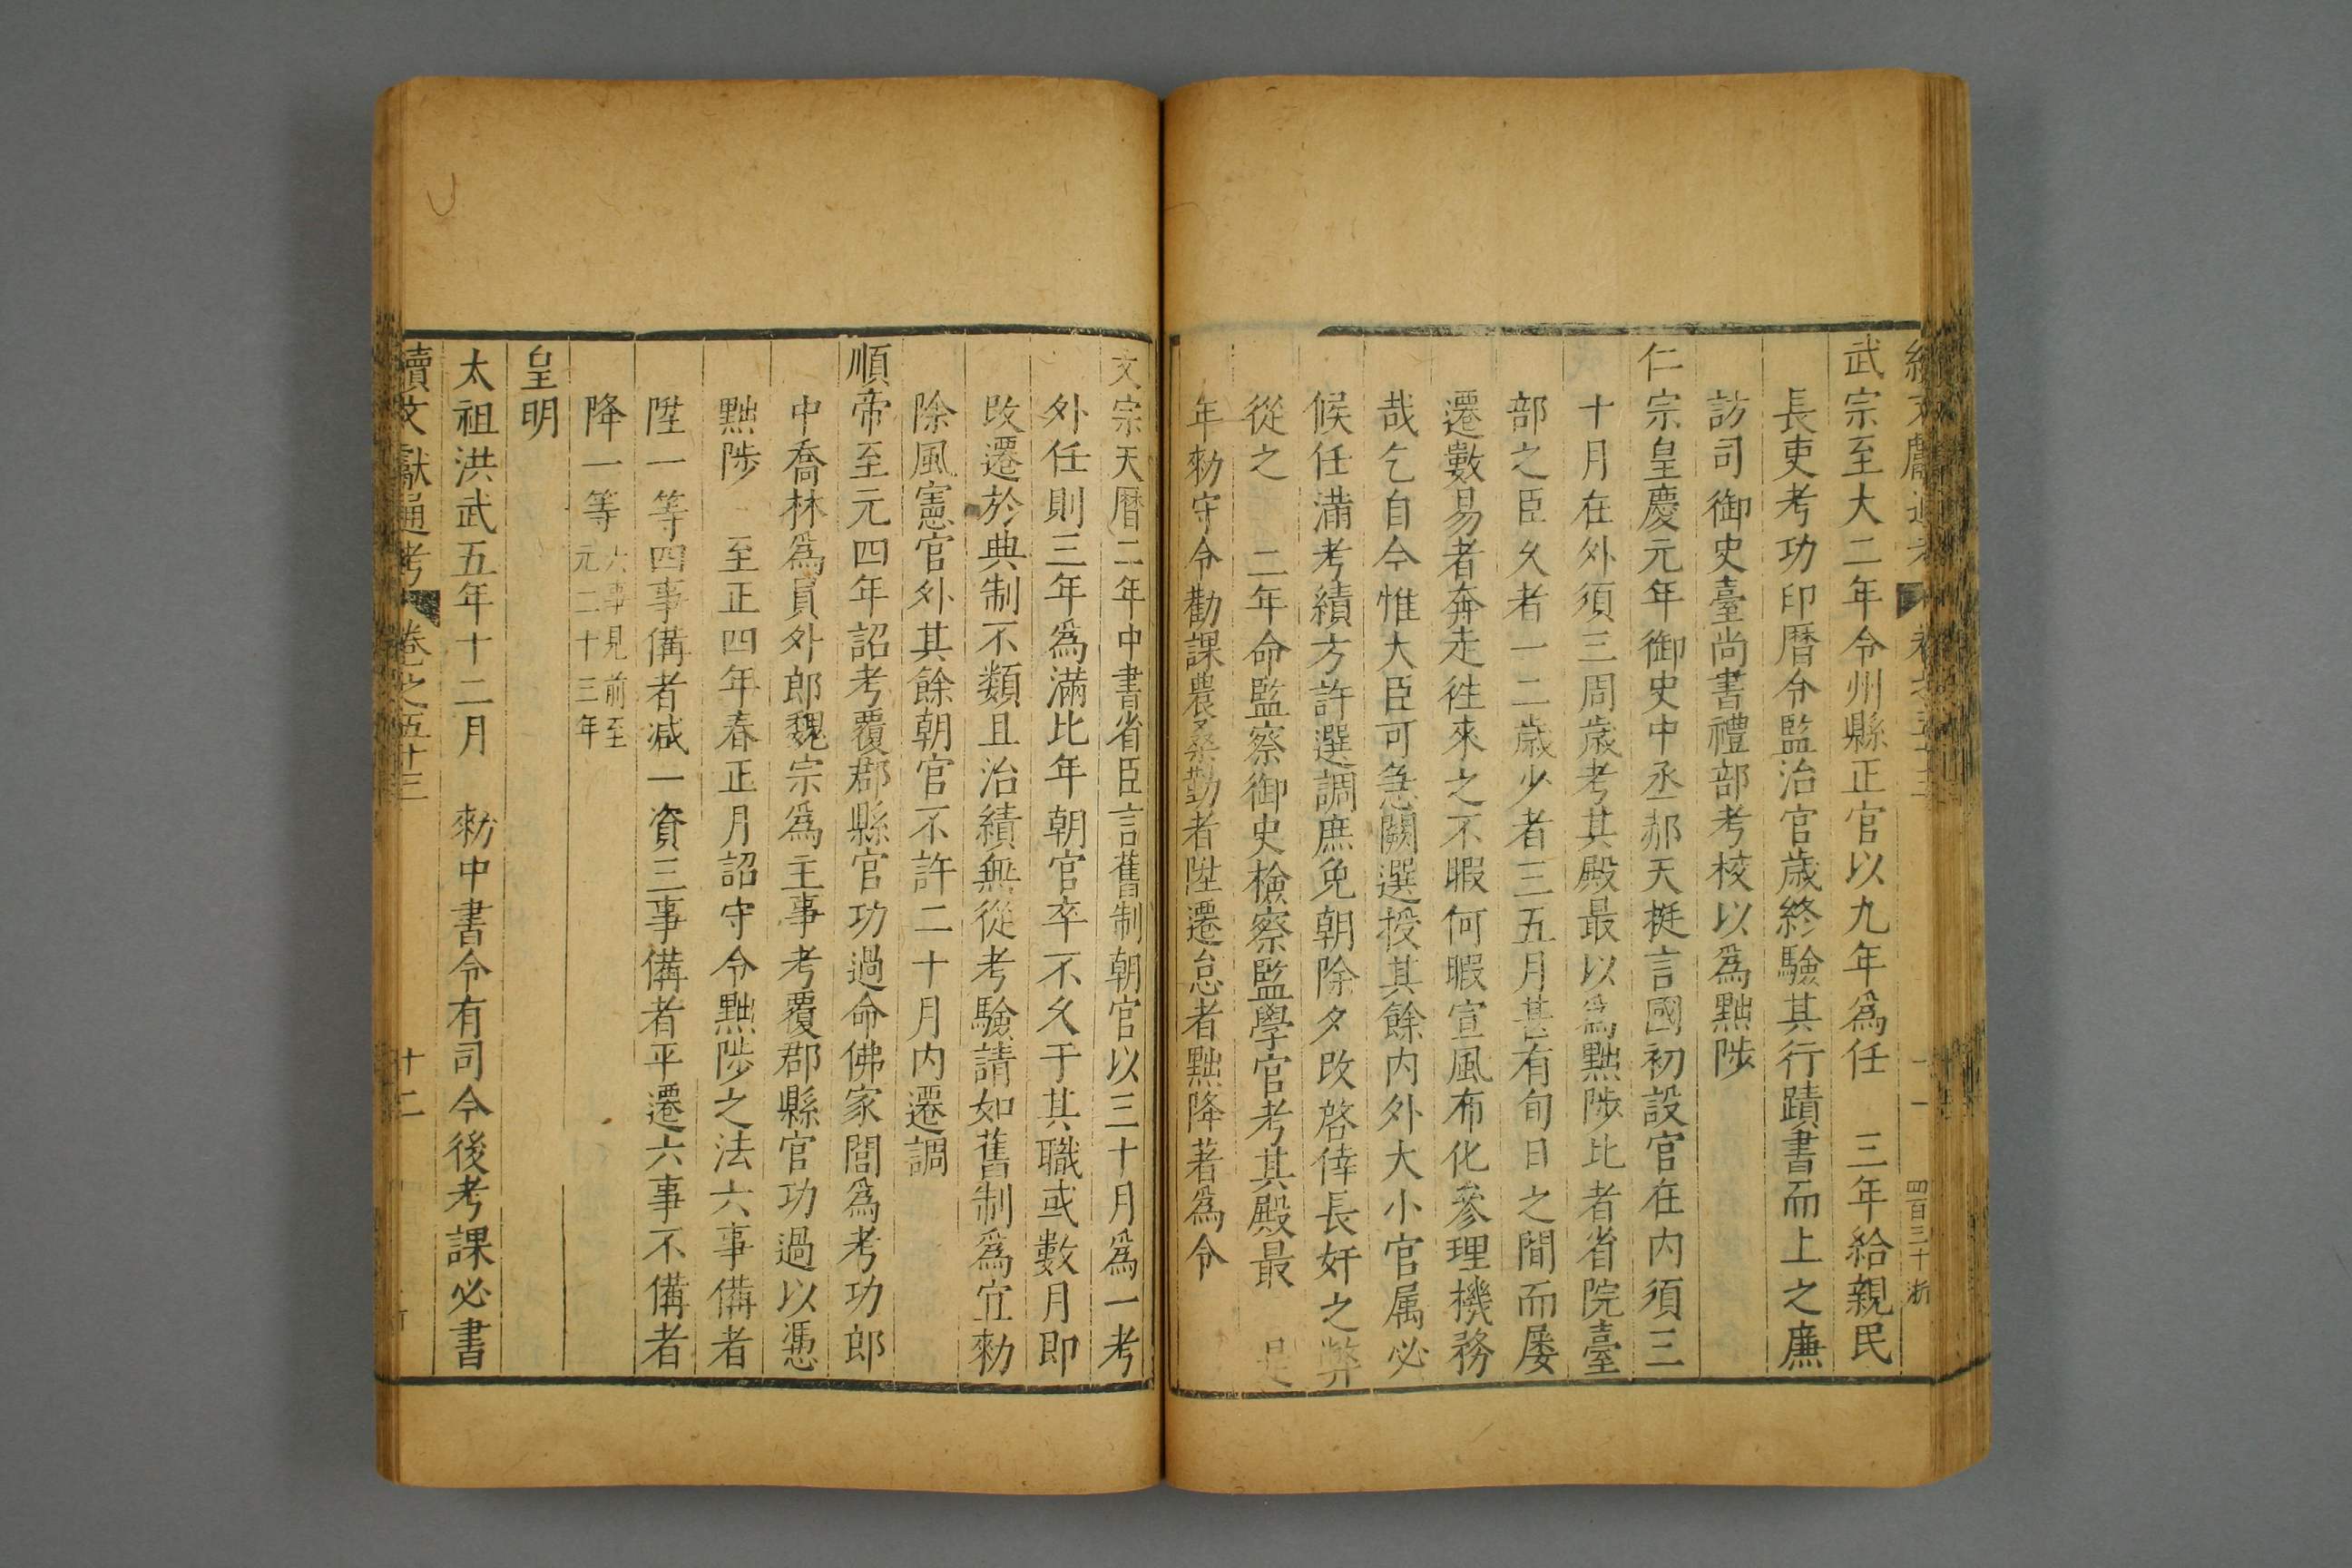 武宗至大二年令州縣正官以九年為任　三年給親民
長吏考功印曆令監治官歲終驗其行蹟書而上之廉
訪司御史臺尚書禮部考校以為黜陟
仁宗皇慶元年御史中丞郝天挺言國初設官在內須三
十月在外須三周歲考其殿最以為黜陟比者省院臺
部之臣久者一二歲少者三五月甚有旬日之間而屢
遷數易者奔走往來之不暇何暇宣風布化參理機務
哉乞自今惟大臣可急闕選授其餘內外大小官属必
候任滿考績方許選調庶免朝除夕改啓倖長奸之弊
從之　二年命監察御史檢察監學官考其殿最　是
年勑守令勸課農桑勤者陞遷怠者黜降著為令
文宗天曆二年中書省臣言舊制朝官以三十月為一考
外任則三年為滿比年朝官卒不久于其職或數月即
改遷於典制不類且治績無從考驗請如舊制為宜勑
除風憲官外其餘朝官不許二十月內遷調
順帝至元四年詔考覆郡縣官功過命佛家閭為考功郎
中喬林為員外郎魏宗為主事考覆郡縣官功過以憑
黜陟　至正四年春正月詔守令黜陟之法六事備者
陞一等四事備者減一資三事備者平遷六事不備者
降一等 六事見前至元二十三年
皇明
太祖洪武五年十二月　勑中書令有司今後考課必書
續文獻通考　卷之五十三　十二